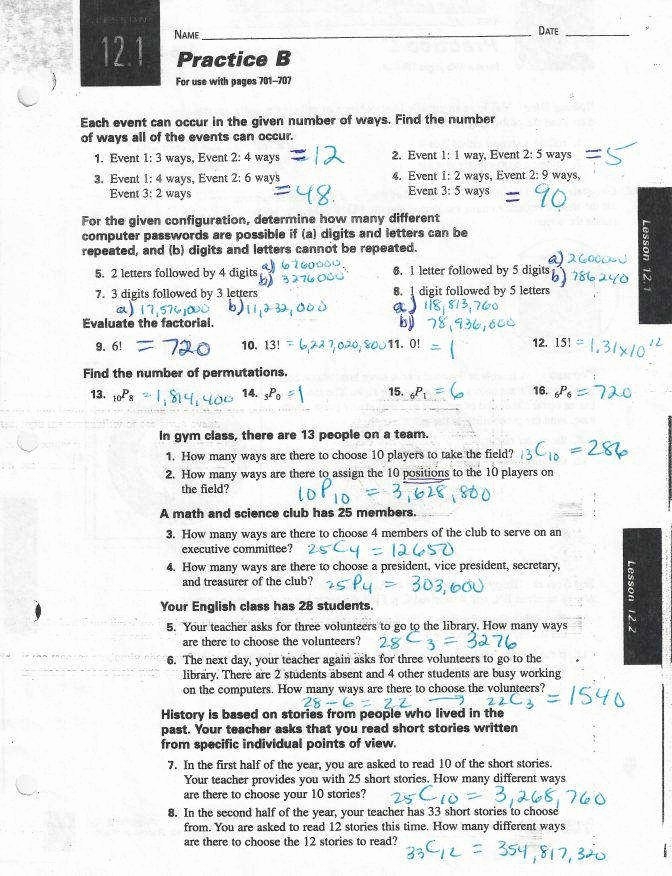 LESSON
12.1
NAME DATE
Practice B
For use with pages 701–707
Each event can occur in the given number of ways. Find the number
of ways all of the events can occur.
1. Event 1: 3 ways, Event 2: 4 ways = 12 2. Event 1: 1 way, Event 2: 5 ways = 5
3. Event 1: 4 ways, Event 2: 6 ways 4. Event 1: 2 ways, Event 2: 9 ways,
Event 3: 2 ways = 48 Event 3: 5 ways = 90
For the given configuration, determine how many different
computer passwords are possible if (a) digits and letters can be
repeated, and (b) digits and letters cannot be repeated.
5. 2 letters followed by 4 digits a) 6760000 b) 3276000 6. 1 letter followed by 5 digits a) 2600000 b) 786240
7. 3 digits followed by 3 letters 8. 1 digit followed by 5 letters
a) 17,576,000 b) 11,232,000 a) 118,813,760
b) 78,936,000
Evaluate the factorial.
9. 6! = 720 10. 13! = 6,227,020,800 11. 0! = 1 12. 15! = 1.31x10¹²
Find the number of permutations.
13. ₁₀P₈ = 1,814,400 14. ₅P₀ = 1 15. ₆P₁ = 6 16. ₆P₆ = 720
Lesson 12.1
In gym class, there are 13 people on a team.
1. How many ways are there to choose 10 players to take the field? 13C10 = 286
2. How many ways are there to assign the 10 positions to the 10 players on
the field? 10P10 = 3,628,800
A math and science club has 25 members.
3. How many ways are there to choose 4 members of the club to serve on an
executive committee? 25C4 = 12650
4. How many ways are there to choose a president, vice president, secretary,
and treasurer of the club? 25P4 = 303,600
Your English class has 28 students.
5. Your teacher asks for three volunteers to go to the library. How many ways
are there to choose the volunteers? 28C3 = 3276
6. The next day, your teacher again asks for three volunteers to go to the
library. There are 2 students absent and 4 other students are busy working
on the computers. How many ways are there to choose the volunteers?
28-6 = 22 → 22C3 = 1540
Lesson 12.2
History is based on stories from people who lived in the
past. Your teacher asks that you read short stories written
from specific individual points of view.
7. In the first half of the year, you are asked to read 10 of the short stories.
Your teacher provides you with 25 short stories. How many different ways
are there to choose your 10 stories? 25C10 = 3,268,760
8. In the second half of the year, your teacher has 33 short stories to choose
from. You are asked to read 12 stories this time. How many different ways
are there to choose the 12 stories to read? 33C12 = 354,817,320